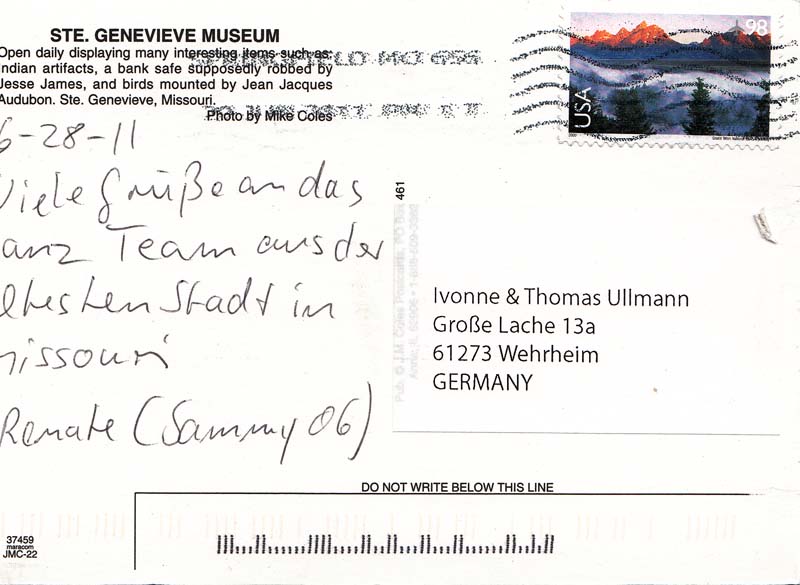 STE. GENEVIEVE MUSEUM
Open daily displaying many interesting items such as:
Indian artifacts, a bank safe supposedly robbed by
Jesse James, and birds mounted by Jean Jacques
Audubon. Ste. Genevieve, Missouri.
Photo by Mike Coles
SPRINGFIELD MO 656
6-28-11
Viele Grüße an das
anz Team aus der
ltesten Stadt in
Missouri
Renate (Sammy 06)
98
USA
461
Pub. © J.M. Coles Postcards, PO Box
Ivonne & Thomas Ullmann
Große Lache 13a
61273 Wehrheim
GERMANY
DO NOT WRITE BELOW THIS LINE
37459
maracom
JMC-22